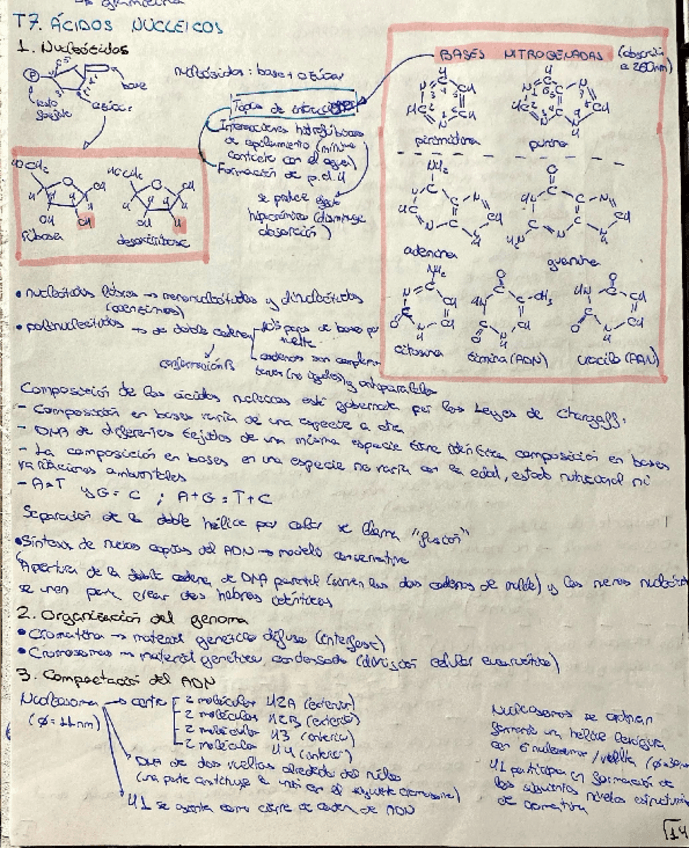 T7. ÁCIDOS NUCLEICOS
1. Nucleótidos
P
base
resto
azúcar
nucleósidos: base + azúcar
Tipos de
Interacciones hidrofóbicas
de apilamiento (mínimo
contacto con el agua)
Formación de p.d.H
se produce
hipocrómico (disminuye
absorción)
BASES NITROGENADAS (absorción
a 260nm)
pirimidina
purina
adenina
guanina
citosina
timina (ADN)
uracilo (ARN)
ribosa
desoxirribosa
• nucleótidos libres → mononucleótidos y dinucleótidos
(coenzimas)
• polinucleótidos → de doble cadena
pares de bases por
vuelta
cadenas son complemen-
tarias (no iguales) y antiparalelas
conformación B
Composición de los ácidos nucleicos está gobernada por las Leyes de Chargaff:
- Composición en bases varía de una especie a otra
- DNA de diferentes tejidos de una misma especie tiene idéntica composición en bases
- La composición en bases en una especie no varía con la edad, estado nutricional ni
variaciones ambientales
- A=T y G=C ; A+G = T+C
Separación de la doble hélice por calor se llama "fusión"
• Síntesis de nuevas copias del ADN → modelo conservativo
Apertura de la doble cadena de DNA parental (sirven las dos cadenas de molde) y los nuevos
se unen para crear dos hebras idénticas
2. Organización del genoma
• Cromatina → material genético difuso (interfase)
• Cromosomas → material genético condensado (división celular eucariótica)
3. Compactación del ADN
Nucleosoma
(Ø = 11 nm)
2 moléculas H2A (exterior)
2 moléculas H2B (exterior)
2 moléculas H3 (interior)
2 moléculas H4 (interior)
DNA da dos vueltas alrededor del núcleo
(una parte constituye la unión en el siguiente cromosoma)
H1 se aporta como cierre de cadena de ADN
Nucleosomas se ordenan
formando un hélice
con 6 nucleosomas / vuelta
H1 participa en formación de
los siguientes niveles estructurales
de cromatina
14